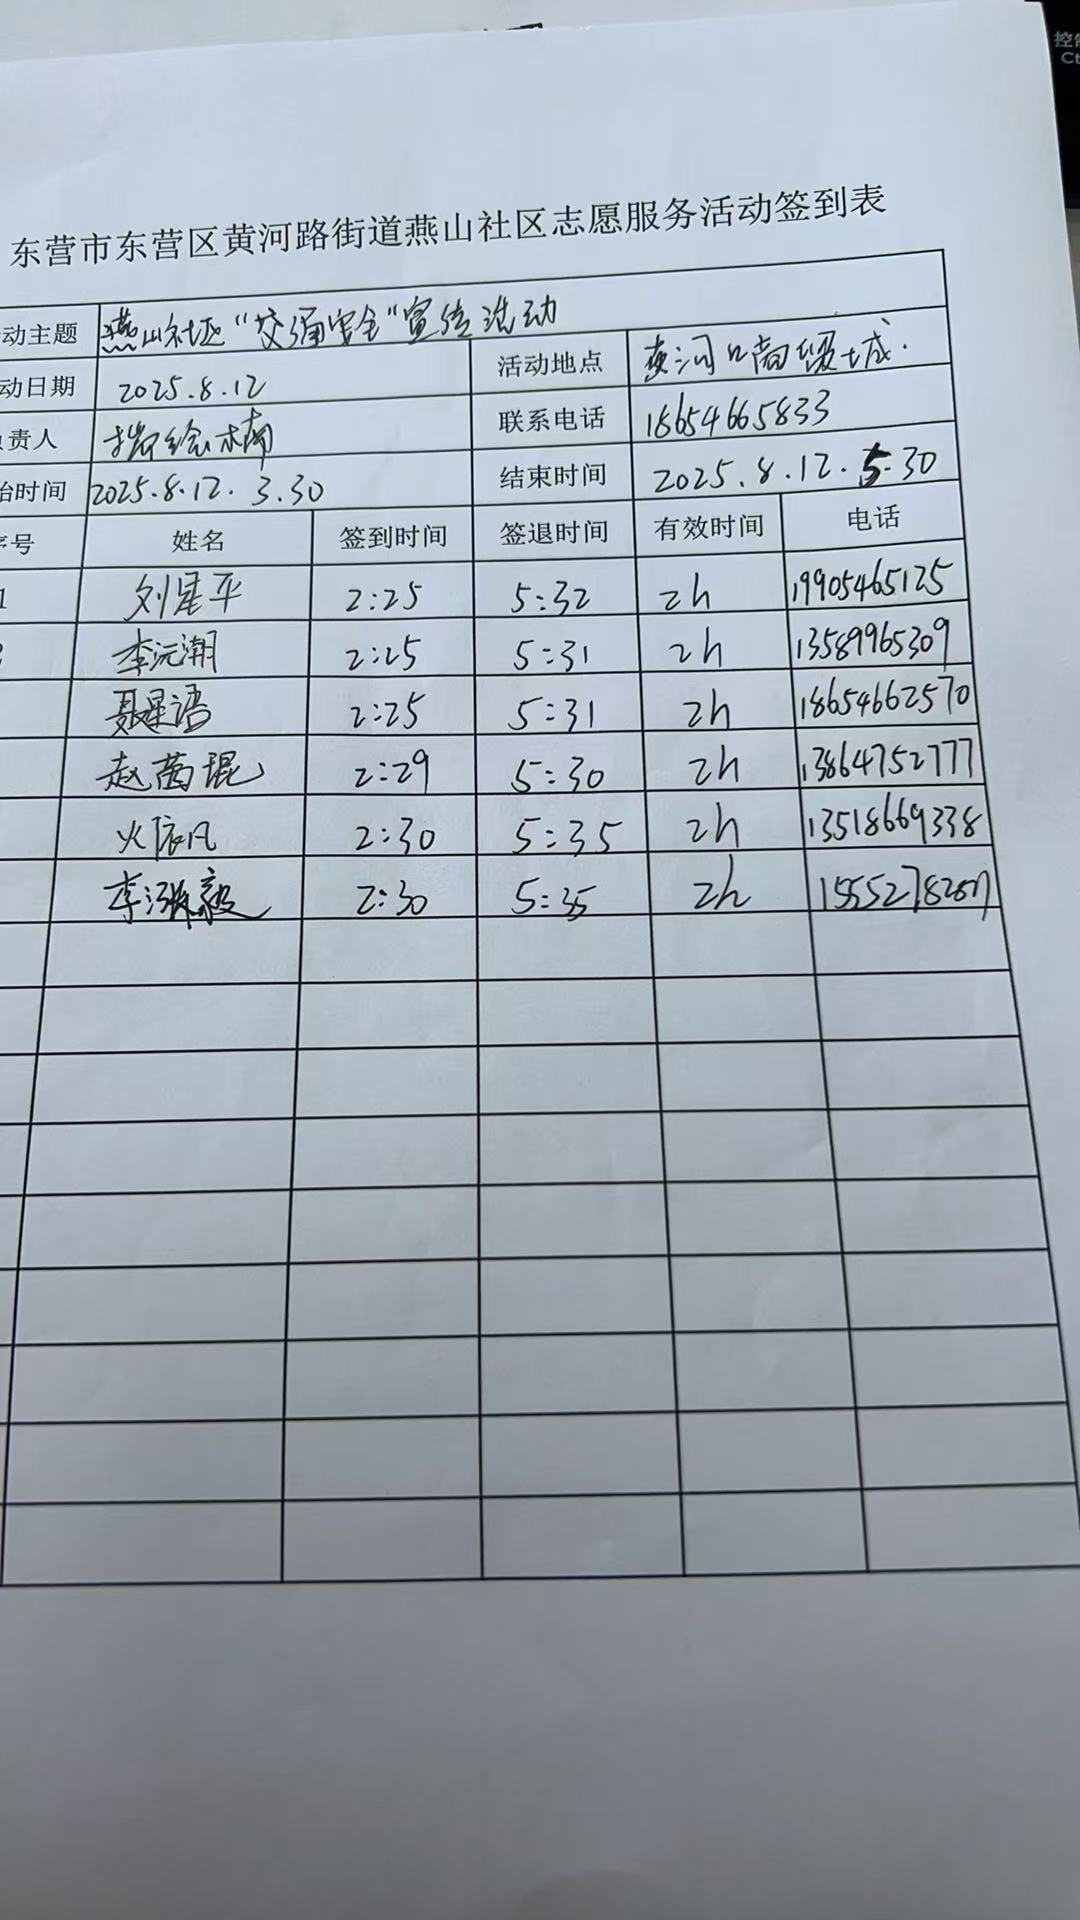 东营市东营区黄河路街道燕山社区志愿服务活动签到表
动主题 燕山社区“交通安全”宣传活动
动日期 2025.8.12 活动地点 黄河口尚级城.
责人 绘楠 联系电话 18654665833
始时间 2025.8.12. 3.30 结束时间 2025.8.12.5.30
序号 姓名 签到时间 签退时间 有效时间 电话
1 刘星平 2:25 5:32 2h 19905465125
李沅潮 2:25 5:31 2h 13589965309
聂星语 2:25 5:31 2h 18654662570
赵茜琨 2:29 5:30 2h 13864752777
火依凡 2:30 5:35 2h 13518669338
李毅 2:30 5:35 2h
控制
Ct